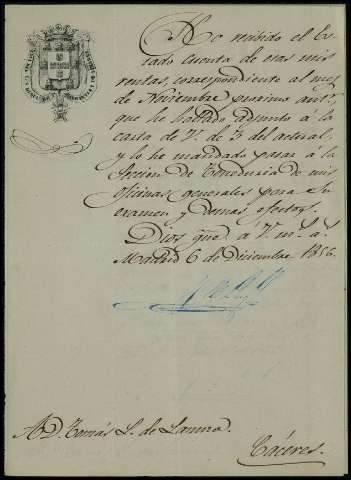 He recibido el Es-
tado cuenta de esas mis
rentas, correspondiente al mes
de Noviembre proximo antr.
que he hallado adjunto á la
carta de V. de 3 del actual,
y lo he mandado pasar á la
Seccion de Teneduria de mis
oficinas generales para su
examen y demas efectos.
Dios gue. a V. m. a.
Madrid 6 de Diciembre 1856.
A D. Tomás L. de Lanuza.
Cáceres.